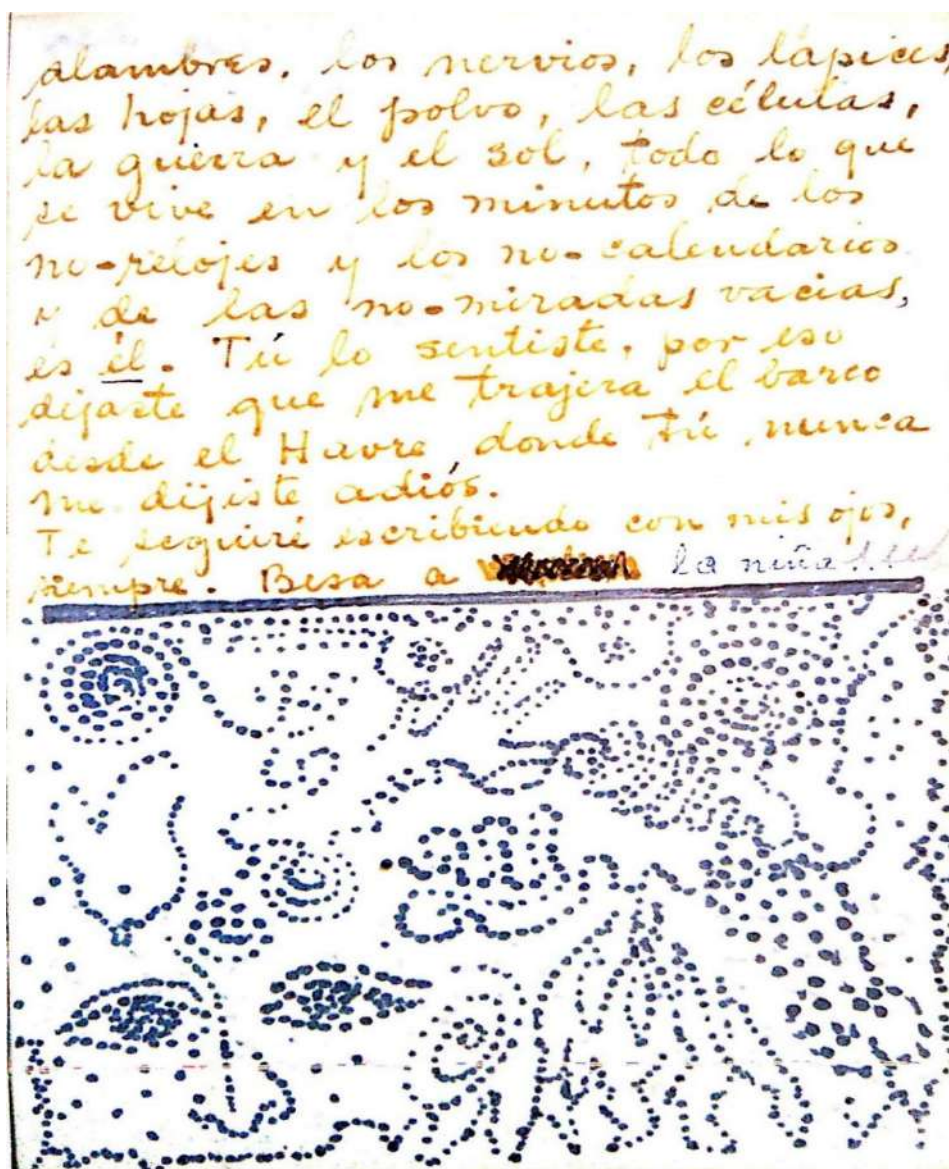 alambres, los nervios, los lápices,
las hojas, el polvo, las células,
la guerra y el sol, todo lo que
se vive en los minutos de los
no-relojes y los no-calendarios
y de las no-miradas vacias,
es él. Tú lo sentiste, por eso
dejaste que me trajera el barco
desde el Havre, donde tú nunca
me dijiste adiós.
Te seguiré escribiendo con mis ojos,
siempre. Besa a la niña